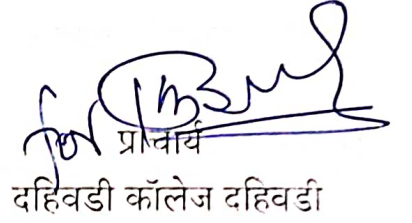 for
प्राचार्य
दहिवडी कॉलेज दहिवडी